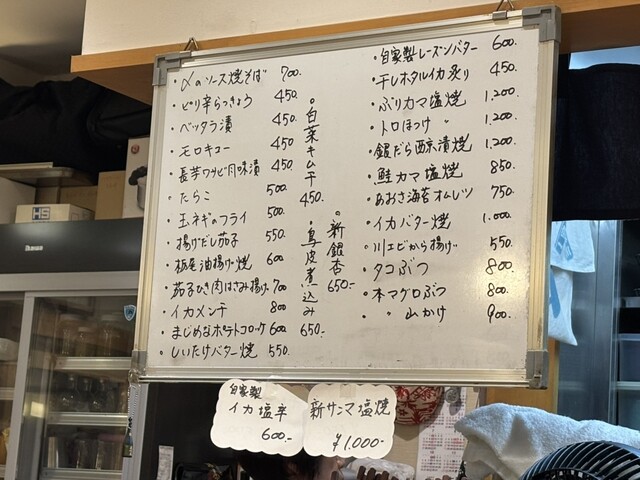 ・〆のソース焼そば 700.
・ピリ辛らっきょう 450.
・ベッタラ漬 450.
・モロキュー 450.
・長芋ワサビ風味漬 450.
・たらこ 500.
・玉ネギのフライ 500.
・揚げだし茄子 550.
・栃尾油揚げ焼 600.
・茄子ひき肉はさみ揚げ 700
・イカメンチ 800
・まじめなポテトコロッケ 600.
・しいたけバター焼 550.
・白菜キムチ 450.
・鳥皮煮込み 650.
・新銀杏 650.
・自家製レーズンバター 600.
・干しホタルイカ炙り 450.
・ぶりカマ塩焼 1,200
・トロほっけ 〃 1,200.
・銀だら西京漬焼 1,200.
・鮭カマ塩焼 850
・あおさ海苔オムレツ 750.
・イカバター焼 1,000.
・川エビから揚げ 550.
・タコぶつ 800.
・本マグロぶつ 800.
・〃 山かけ 900.
自家製
イカ塩辛
600.-
新サンマ塩焼
¥1,000.-
HS